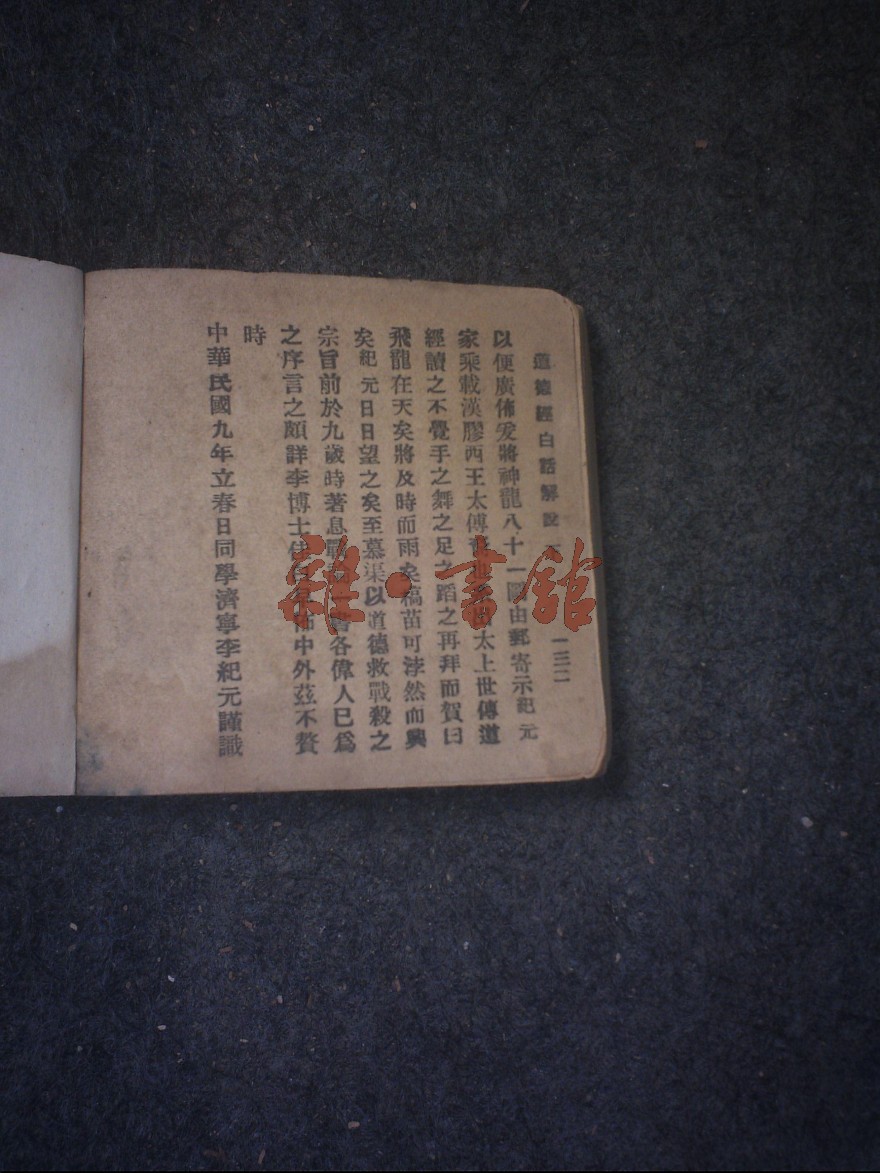 道德經白話解說 下 一三二
以便廣佈爰將神龍八十一 由郵寄示紀元
家乘載漢膠西王太傅 太上世傳道
經讀之不覺手之舞之足之蹈之再拜而賀曰
飛龍在天矣將及時而雨矣稿苗可浡然而興
矣紀元日日望之矣至慕渠以道德救戰殺之
宗旨前於九歲時著息戰 一書各偉人已爲
之序言之頗詳李博士佳 中外茲不贅
時
中華民國九年立春日同學濟寧李紀元謹識
雜·書館